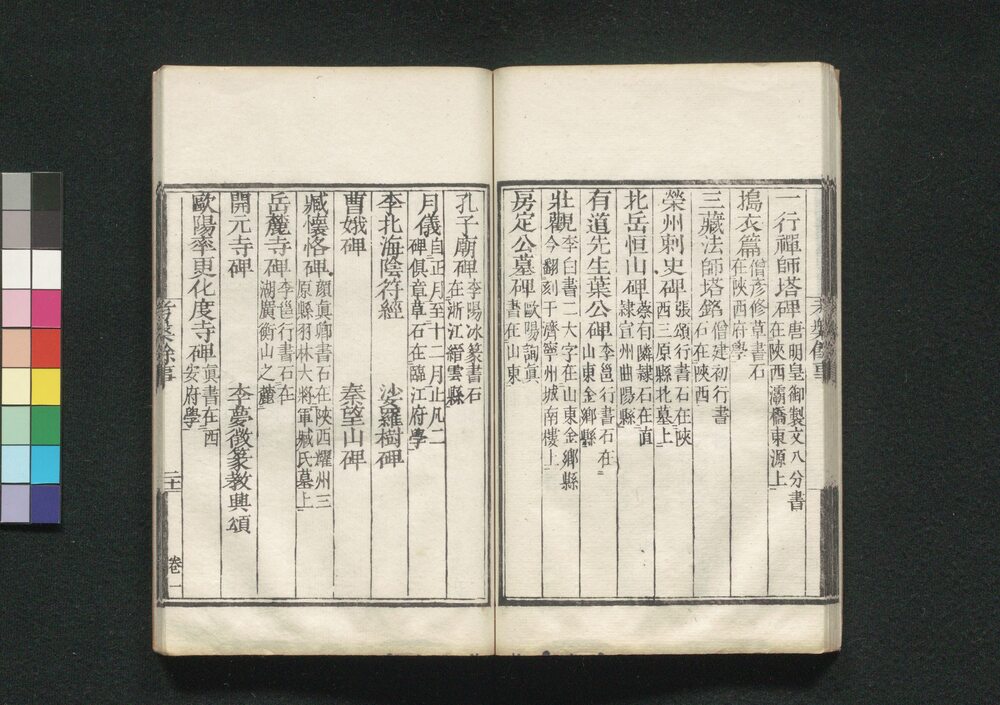 一行禪師塔碑唐明皇御製文八分書在陝西灞橋東源上
搗衣篇僧彦修草書石在陝西府學
三藏法師塔銘僧建初行書石在陝西
榮州刺史碑張頌行書石在陝西三原縣北墓上
北岳恒山碑蔡有隣隸石在直隸宣州曲陽縣
有道先生葉公碑李邕行書石在山東金鄉縣
壯觀李白書二大字在山東金鄉縣今翻刻于濟寧州城南樓上
房定公墓碑歐陽詢真書在山東
孔子廟碑李陽冰篆書石在浙江縉雲縣
月儀自正月至十二月止凡二碑俱章草石在臨江府學
李北海陰符經 娑羅樹碑
曹娥碑 秦望山碑
臧懷恪碑顏真卿書石在陝西耀州三原縣羽林大將軍臧氏墓上
岳麓寺碑李邕行書石在湖廣衡山之麓
開元寺碑 李夢徵篆教興頌
歐陽率更化度寺碑真書在西安府學
考槃餘事
二十一
卷一